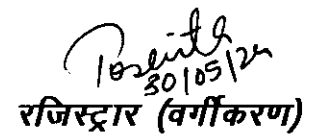 30/05/24
रजिस्ट्रार (वर्गीकरण)